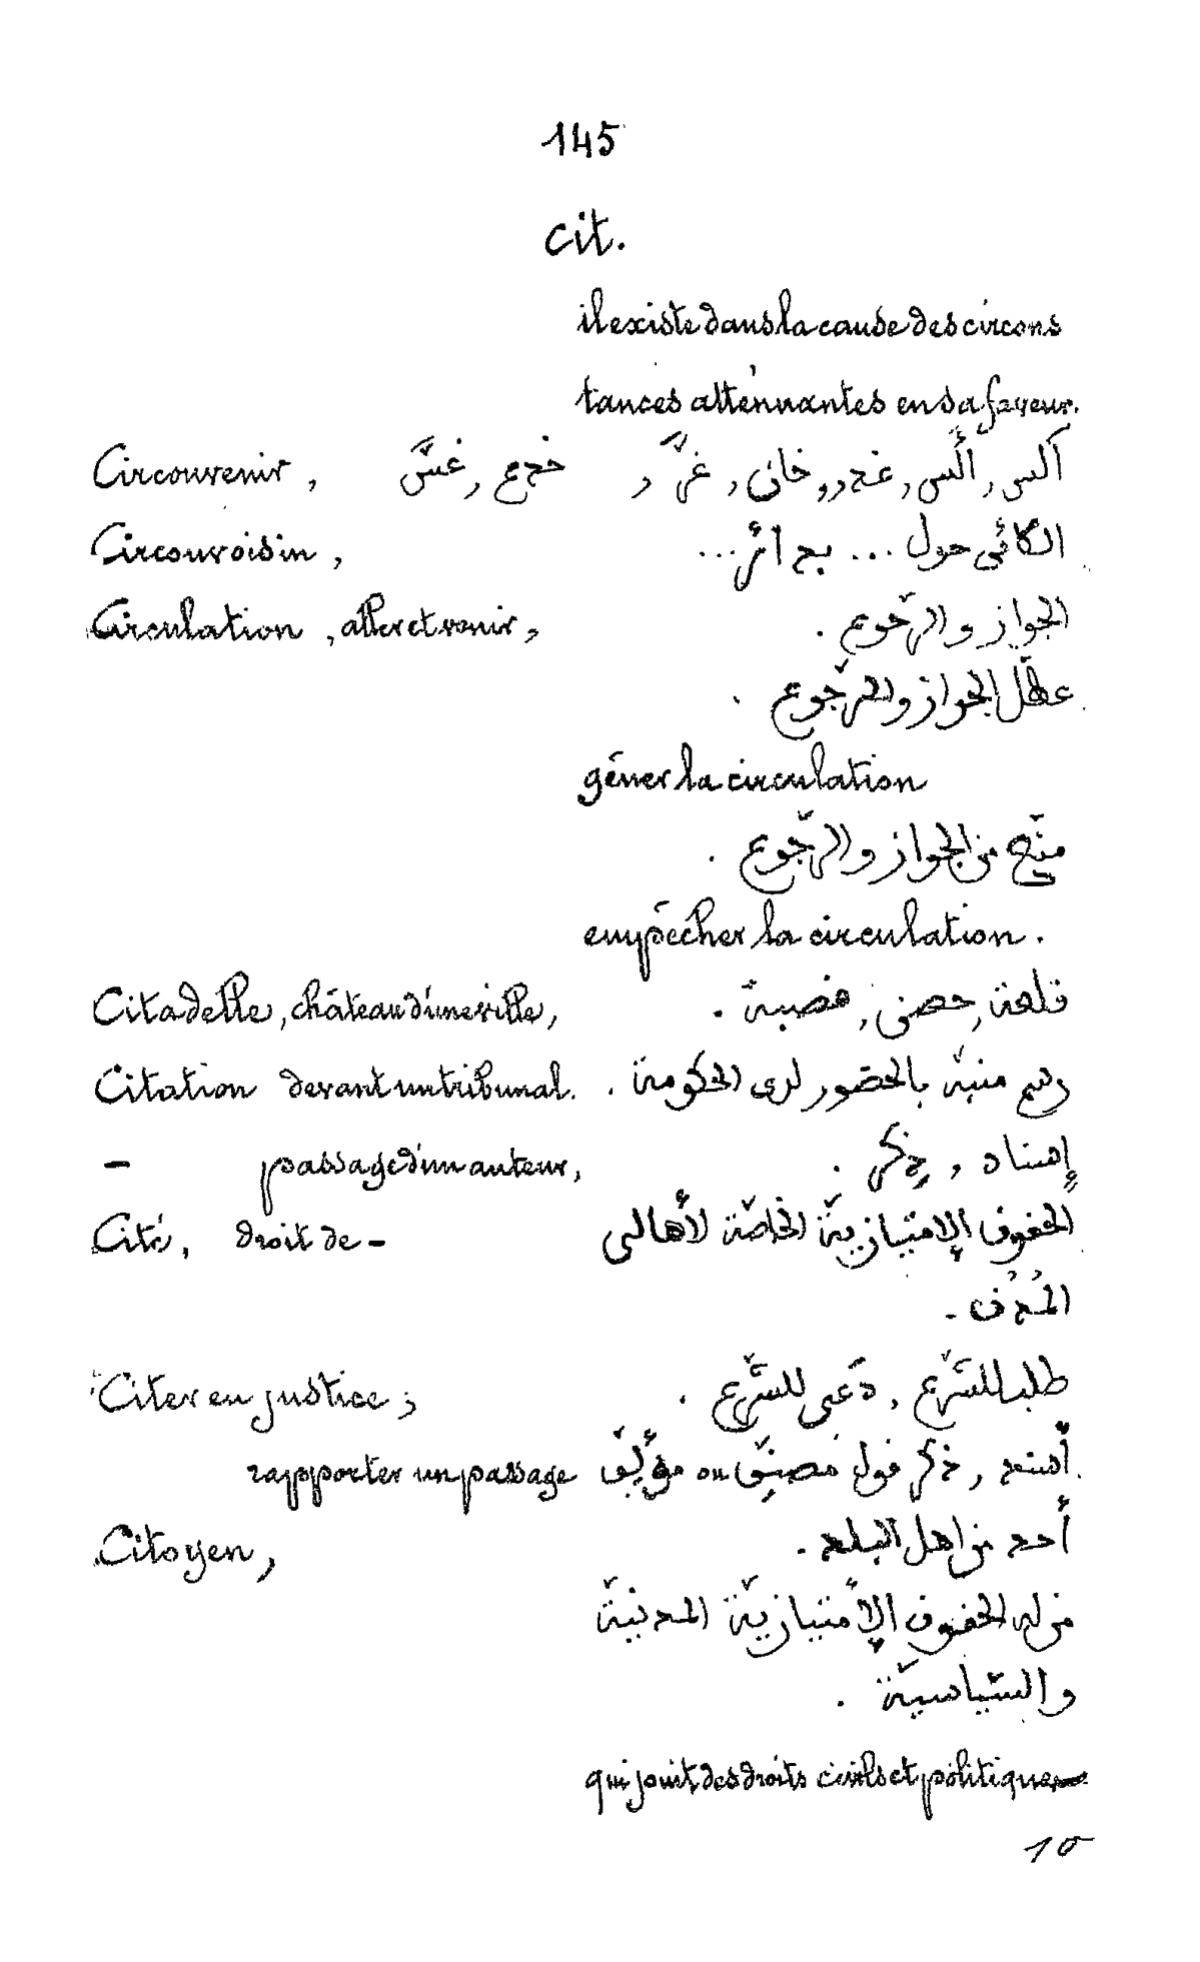 145
cit.
il existe dans la cause des circons
tances atténuantes en sa faveur.
Circonvenir, غشّ, خدع, غرّ, خان, غدر, ألّس, ألس
Circonvoisin, الكائن حول ... بدائر ...
Circulation, aller et venir, الجواز والرّجوع.
عطّل الجواز والرّجوع.
gêner la circulation
منّع من الجواز والرّجوع.
empêcher la circulation.
Citadelle, château d'une ville, قلعة, حصن, قصبة.
Citation devant un tribunal. رسم منبّه بالحضور لدى الحكومة.
— passage d'un auteur, إسناد, ذِكر.
Cité, droit de — الحقوق الإمتيازيّة الخاصّة لأهالى
المُدُن.
Citer en justice; طلب للشّرع, دَعى للشّرع.
rapporter un passage أسند, ذكر قول مصنِّف ou مؤلِّف
Citoyen, أحد من اهل البلد.
من له الحقوق الإمتيازيّة المدنيّة
والسّياسيّة.
qui jouit des droits civils et politiques
10